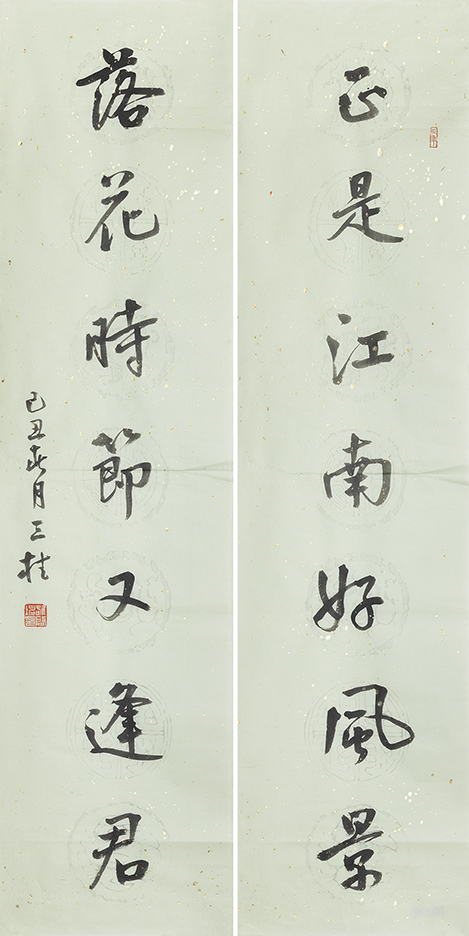 正是江南好風景
落花時節又逢君
己丑春月三桂